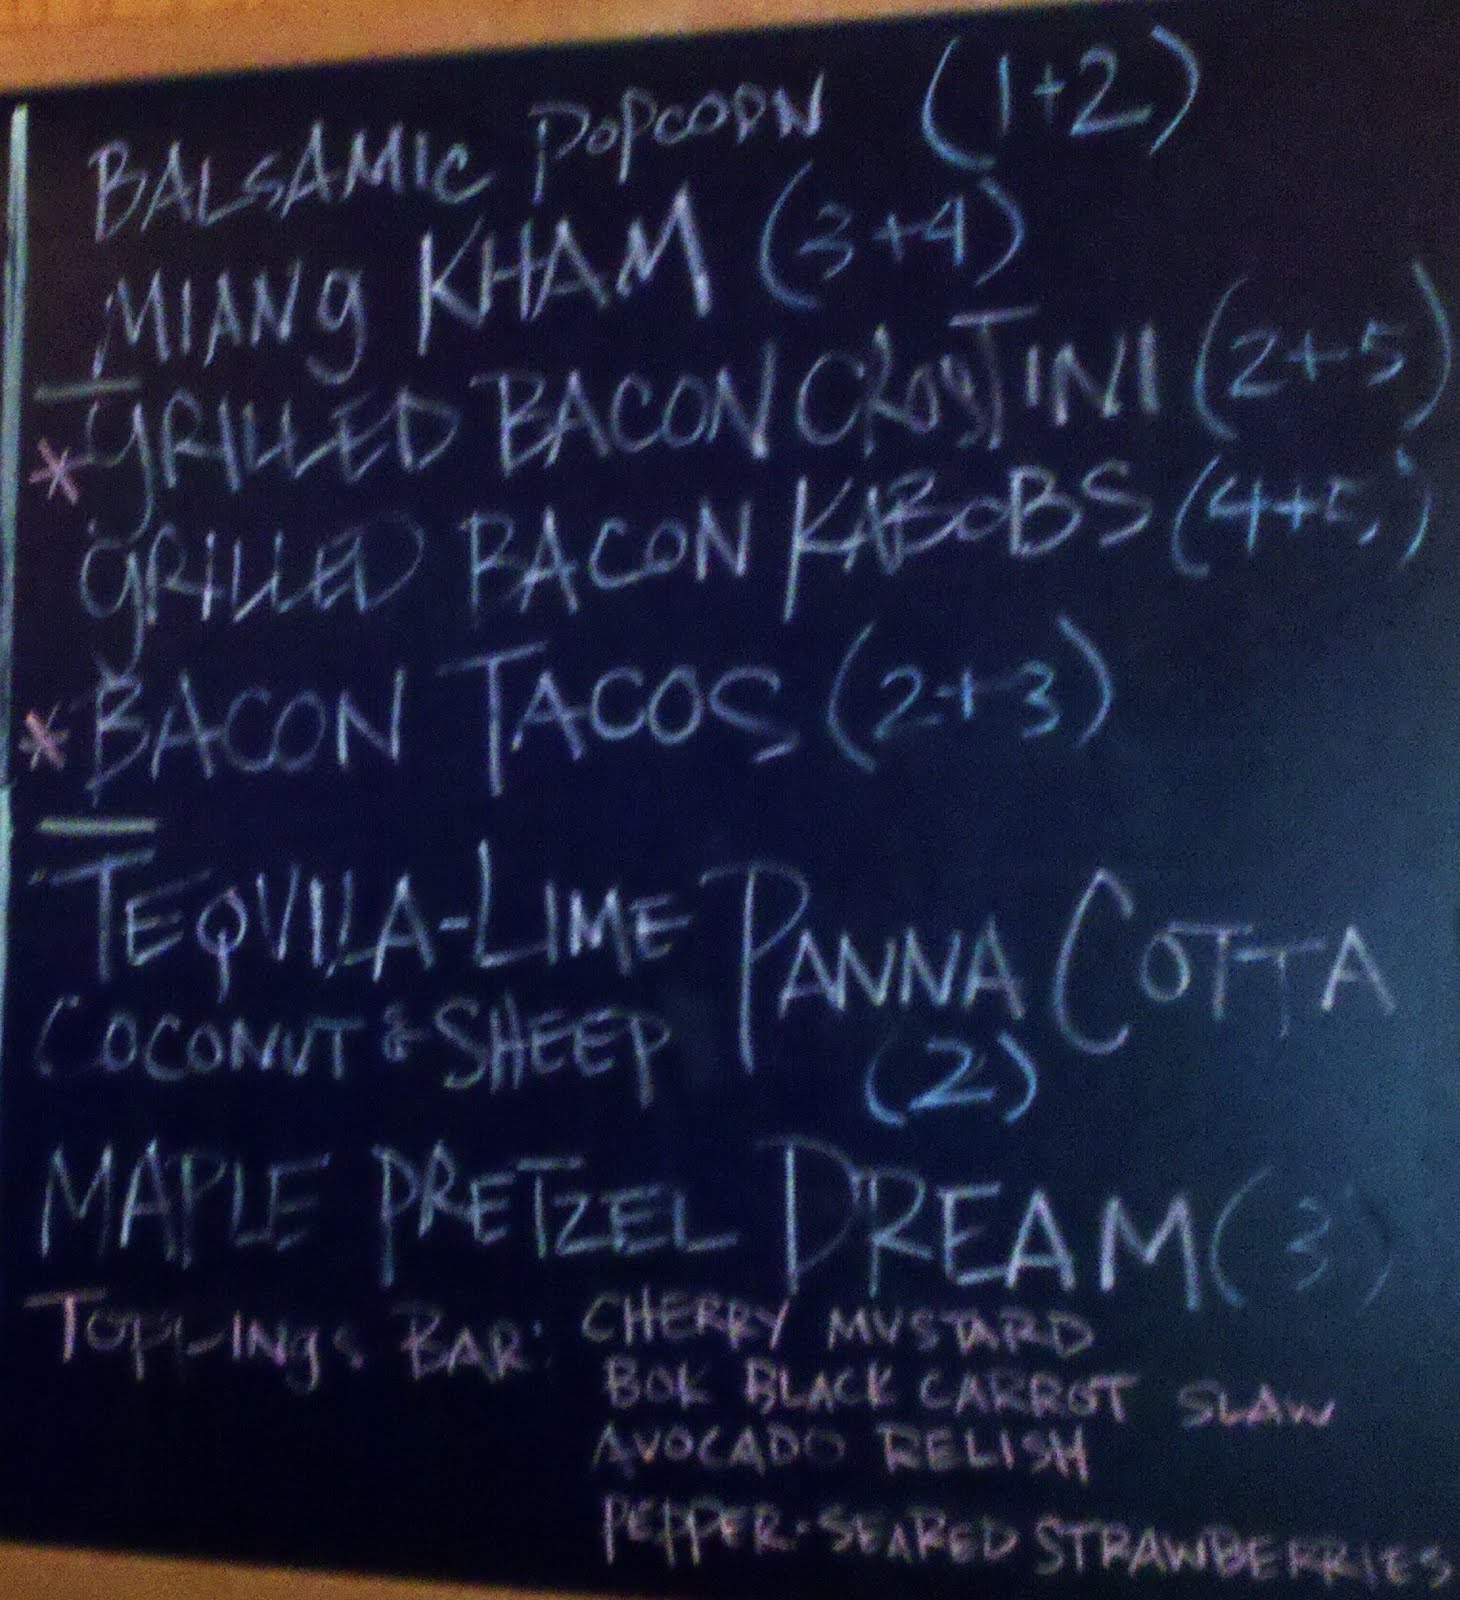 BALSAMIC POPCORN (1+2)
MIANG KHAM (3+4)
* GRILLED BACON CROSTINI (2+5)
GRILLED BACON KABOBS (4+5)
* BACON TACOS (2+3)
TEQUILA-LIME PANNA COTTA
COCONUT & SHEEP (2)
MAPLE PRETZEL DREAM (3)
TOPPINGS BAR: CHERRY MUSTARD
BOK BLACK CARROT SLAW
AVOCADO RELISH
PEPPER-SEARED STRAWBERRIES